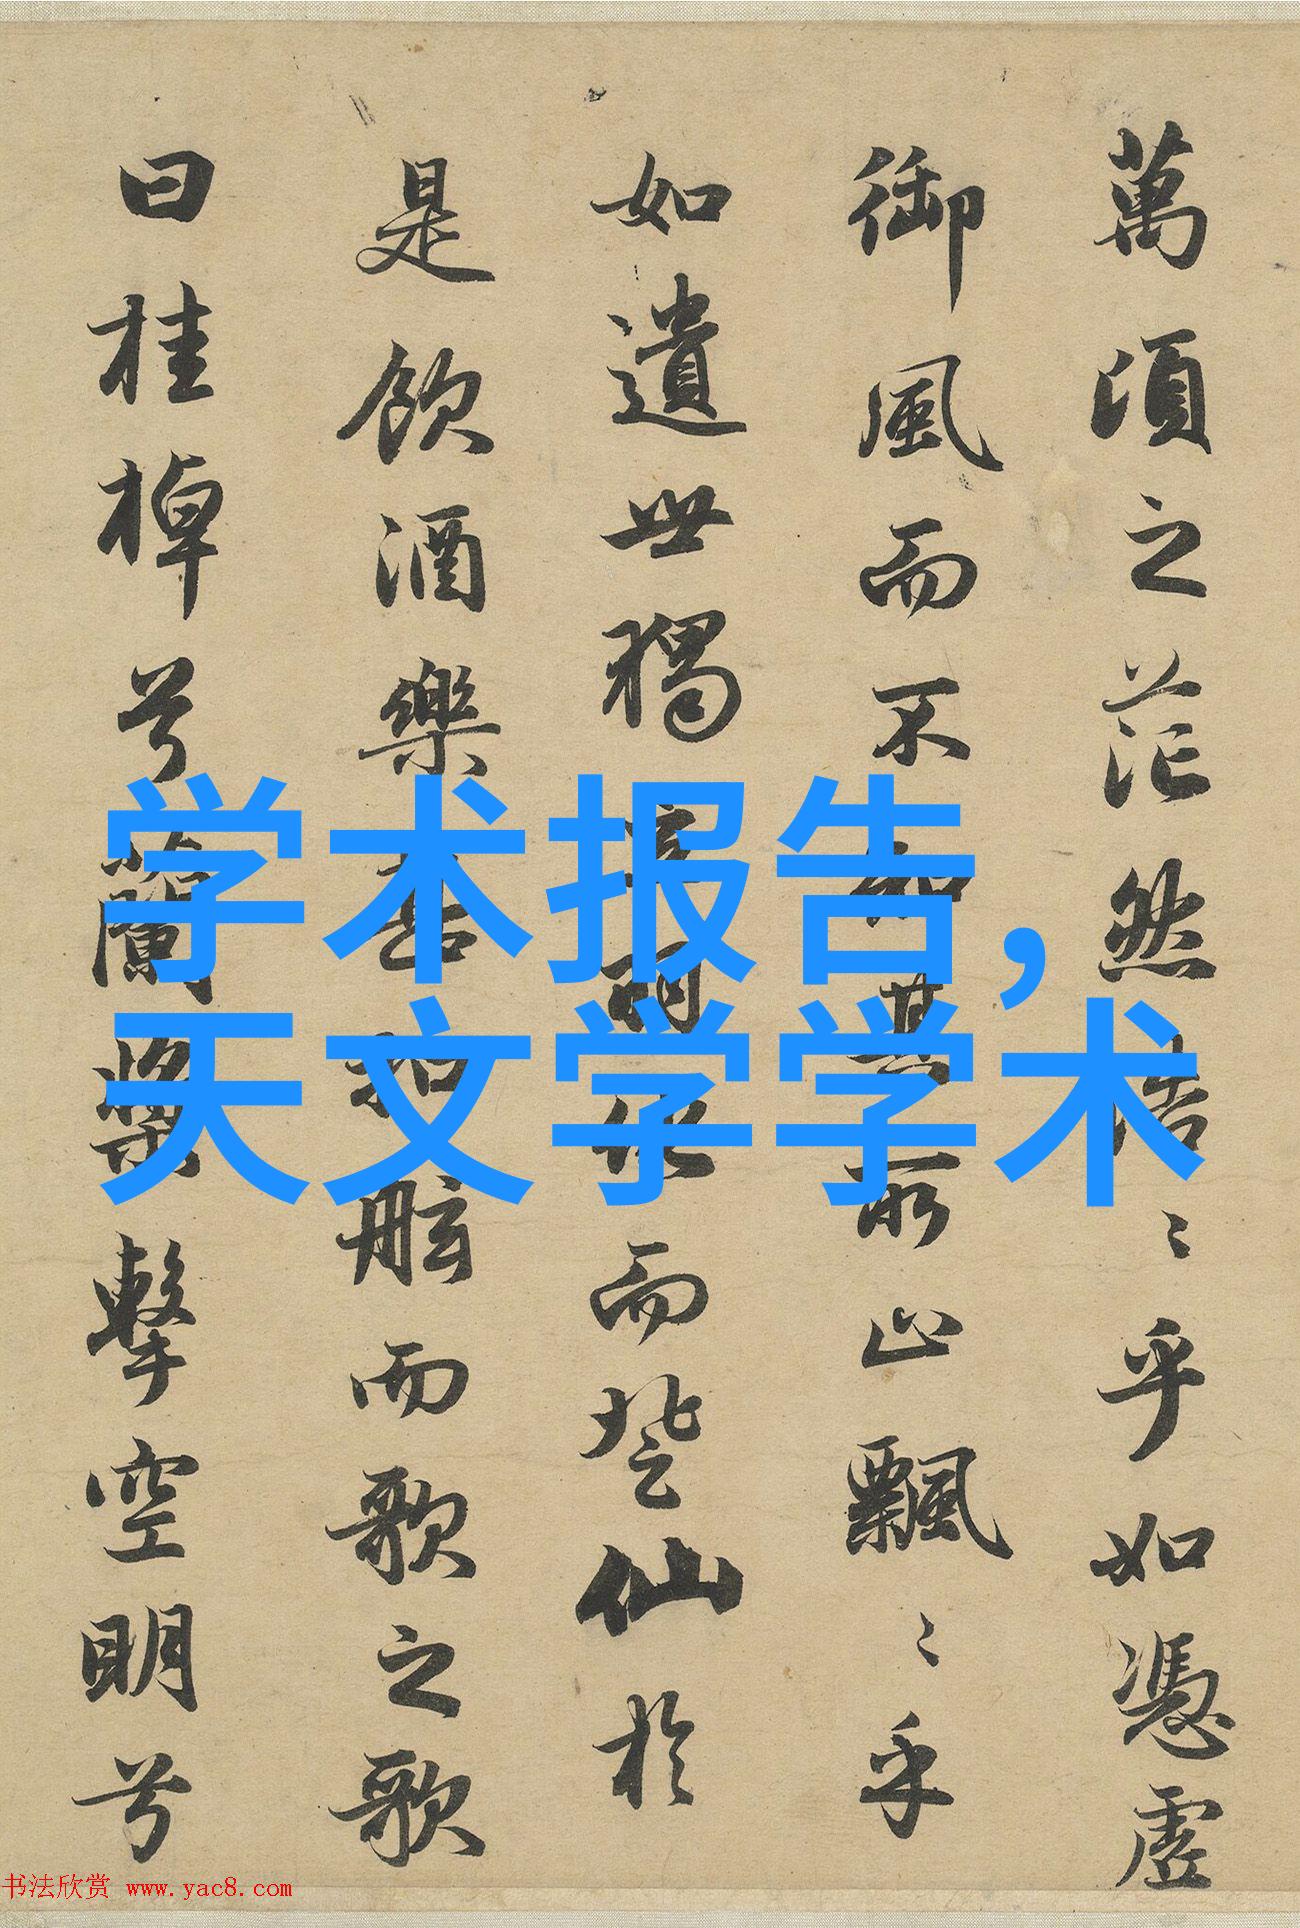 萬頃之茫然浩〻乎如憑虛
御風而不知其所止飄〻乎
如遺世獨立羽化而登仙於
是飲酒樂甚扣舷而歌之歌
曰桂棹兮蘭槳擊空明兮
学术报告,
天文学学术
书法欣赏 www.yac8.com